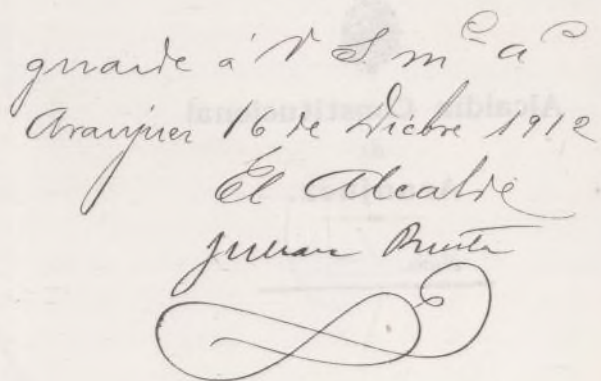 guarde á V S m^s a^s
Aranjuez 16 de Dicbre 1912
El Alcalde
Julian